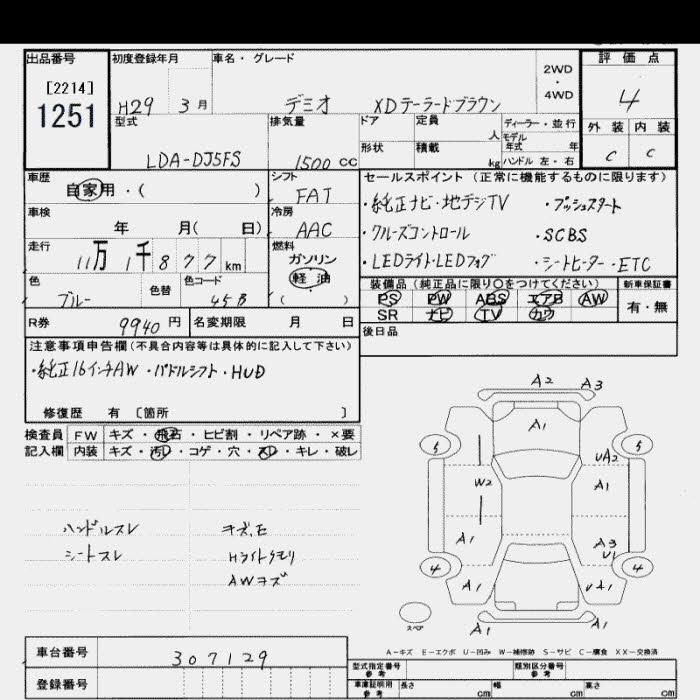 出品番号
[2214]
1251
初度登録年月
H29 3月
車名・グレード
デミオ XDテーラードブラウン
2WD
・
4WD
評価点
4
外装 内装
C C
型式
LDA-DJ5FS
排気量
1500 CC
ドア
形状
定員
人
積載
kg
ディーラー・並行
モデル
年式 年
ハンドル 左・右
車歴
自家用・( )
シフト
FAT
車検
年 月( 日)
冷房
AAC
走行
11万1千877km
燃料
ガソリン
軽油
( )
色
ブルー
色替
色コード
45B
R券 9940円
名変期限 月 日
セールスポイント (正常に機能するものに限ります)
・純正ナビ・地デジTV ・プッシュスタート
・クルーズコントロール ・SCBS
・LEDライト・LEDフォグ ・シートヒーター・ETC
装備品 (純正品に限り○をつけてください)
PS PW ABS エアB AW
SR ナビ TV カワ
新車保証書
有・無
後日品
注意事項申告欄(不具合内容等は具体的に記入して下さい)
・純正16インチAW・パドルシフト・HUD
修復歴 有 [箇所 ]
検査員
記入欄
FW キズ・飛石・ヒビ割・リペア跡・×要
内装 キズ・汚レ・コゲ・穴・スレ・キレ・破レ
ハンドルスレ
シートスレ
キズ,E
Hライトクモリ
AWキズ
A2 A3
A1
5 5
UA2
W2 A1
A1 A3
U1
4 4
A1 UA1
スペア
A1 A1
A-キズ E-エクボ U-凹み W-補修跡 S-サビ C-腐食 XX-交換済
車台番号
307129
登録番号
型式指定番号
参考
類別区分番号
参考
車庫証明用
参考
長さ cm 幅 cm 高さ cm